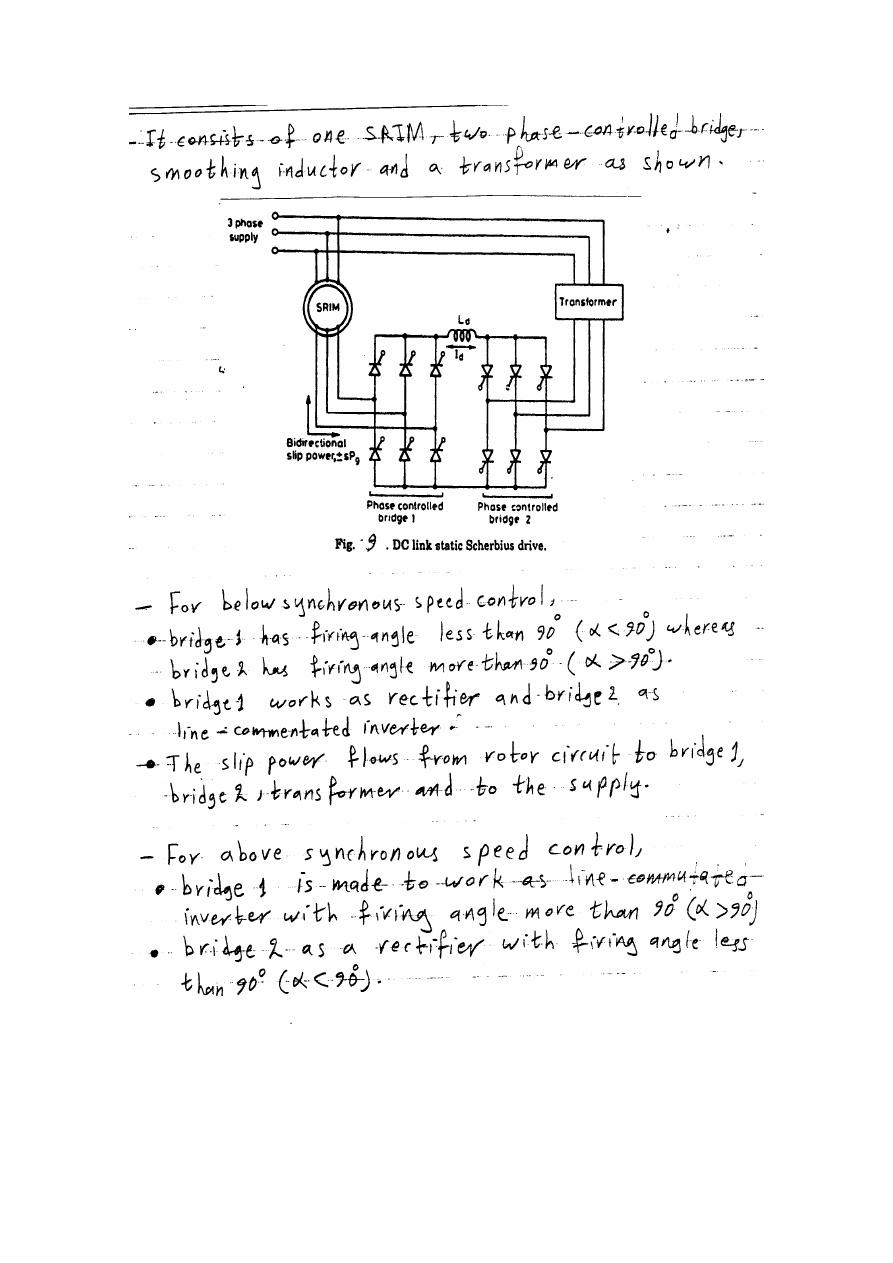 - It consists of one SRIM, two phase-controlled bridge,
smoothing inductor and a transformer as shown.
3 phase
supply
SRIM
Transformer
Ld
Id
Bidirectional
slip power,±sPg
Phase controlled
bridge 1
Phase controlled
bridge 2
Fig. 9 . DC link static Scherbius drive.
- For below synchronous speed control,
• bridge 1 has firing angle less than 90° (α < 90°) whereas
bridge 2 has firing angle more than 90° (α > 90°).
• bridge 1 works as rectifier and bridge 2 as
line - commentated inverter.
• The slip power flows from rotor circuit to bridge 1,
bridge 2, transformer and to the supply.
- For above synchronous speed control,
• bridge 1 is made to work as line-commutated
inverter with firing angle more than 90° (α > 90°)
• bridge 2 as a rectifier with firing angle less
than 90° (α < 90°).